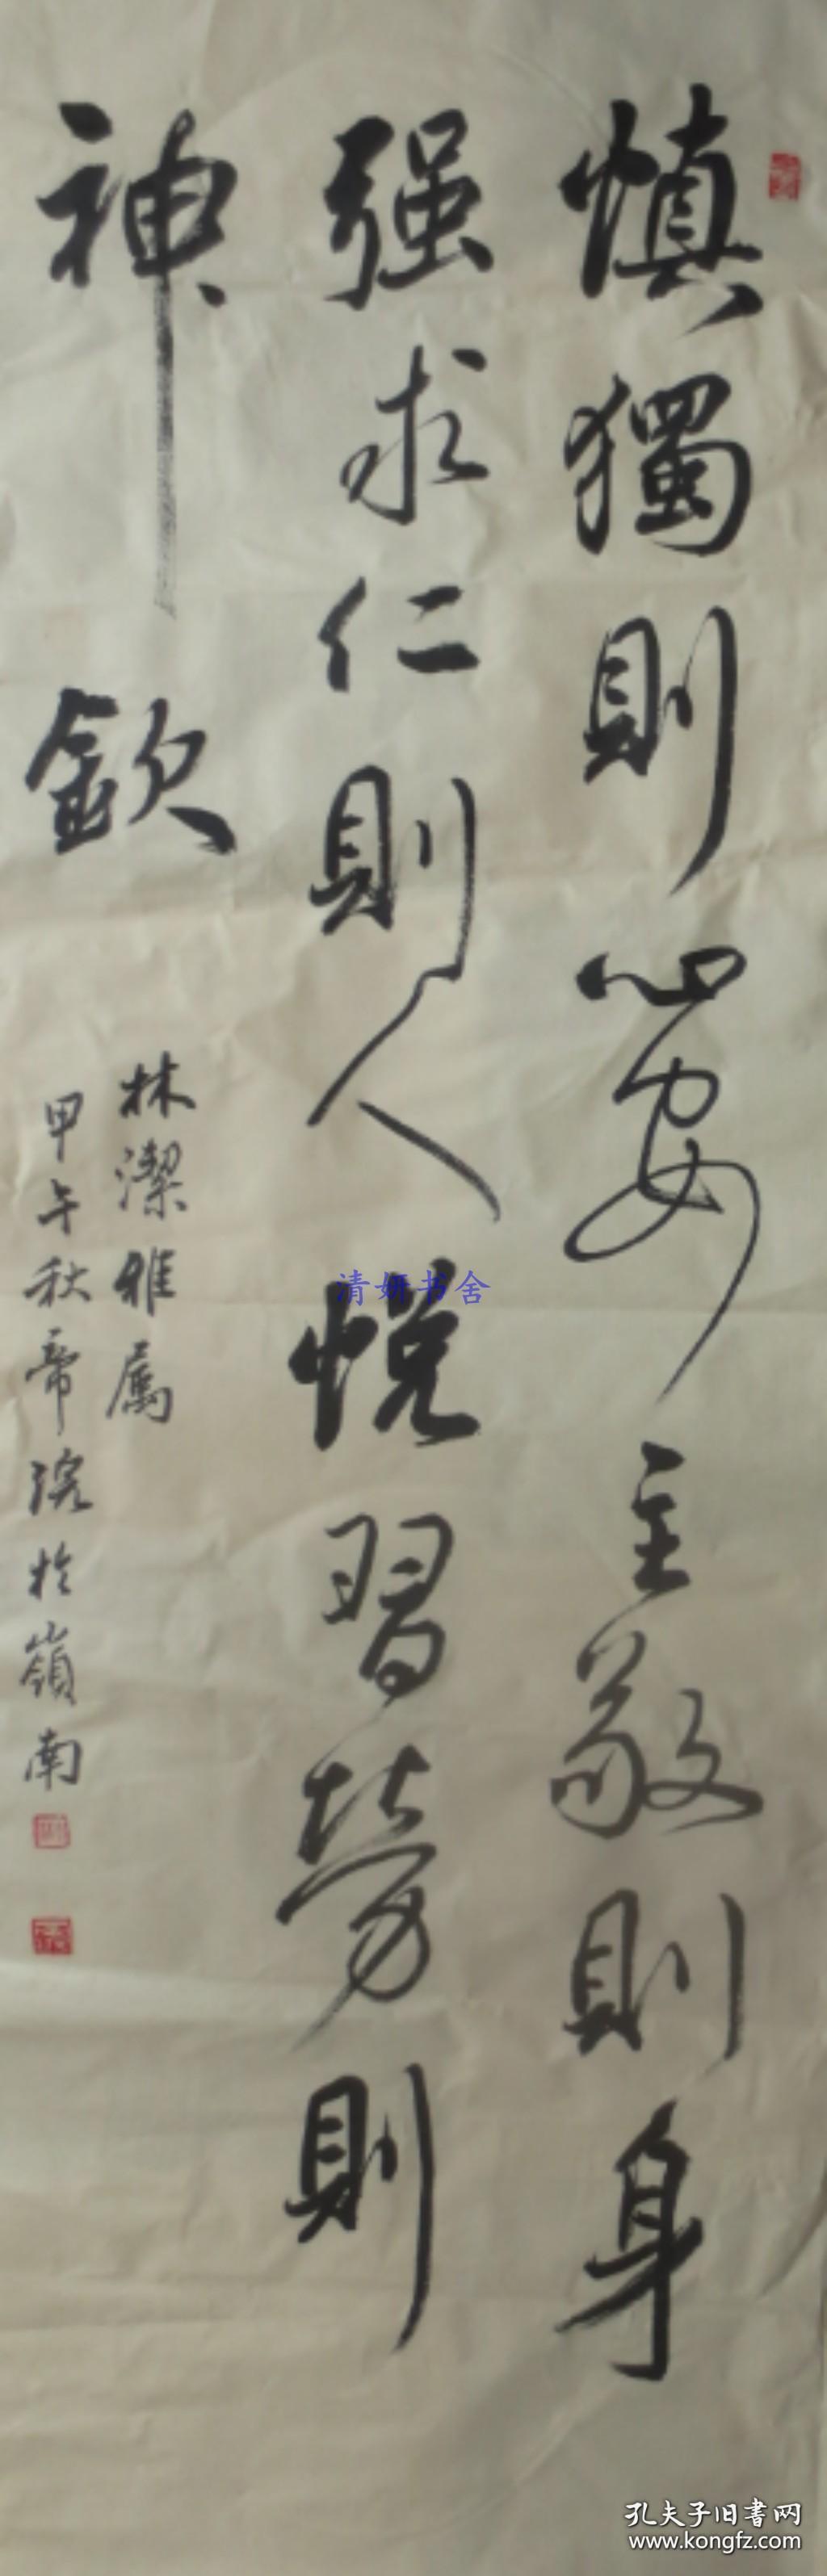 慎獨則心安主敬則身
强求仁則人悦習勞則
神欽
林潔雅屬
甲午秋帝浣於嶺南
清妍书舍
孔夫子旧書网
www.kongfz.com